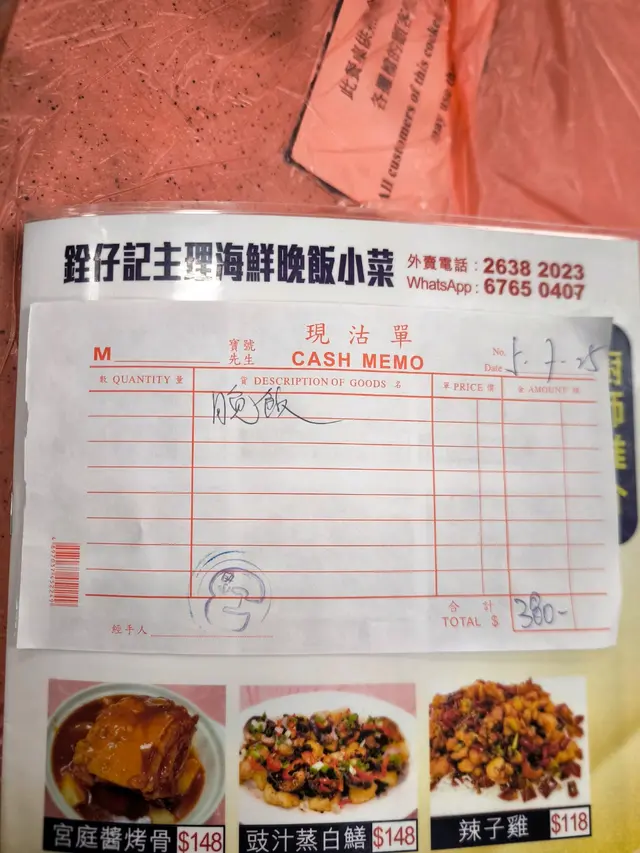 此餐氣供
各攤檔的顧客
All customers of this cooked
may use th
銓仔記主理海鮮晚飯小菜
外賣電話：2638 2023
WhatsApp : 6765 0407
現沽單
CASH MEMO
M
寶號
先生
No.
Date 5-7-25
數 QUANTITY 量
貨 DESCRIPTION OF GOODS 名
單 PRICE 價
金 AMOUNT 額
晚飯
經手人
合計
TOTAL $
380-
宮庭醬烤骨 $148
豉汁蒸白鱔 $148
辣子雞 $118